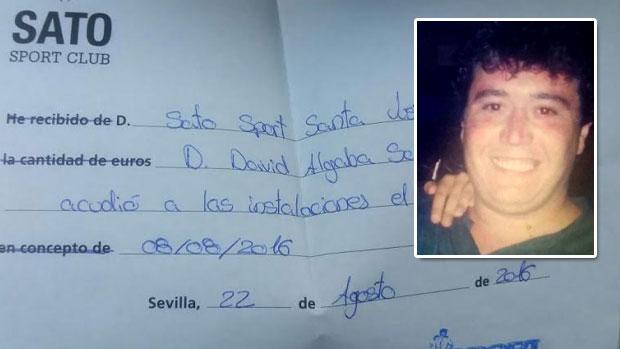 SATO
SPORT CLUB
He recibido de D. Sato Sport Santa
la cantidad de euros D. David Algaba
acudió a las instalaciones el
en concepto de 08/08/2016
Sevilla, 22 de Agosto de 2016